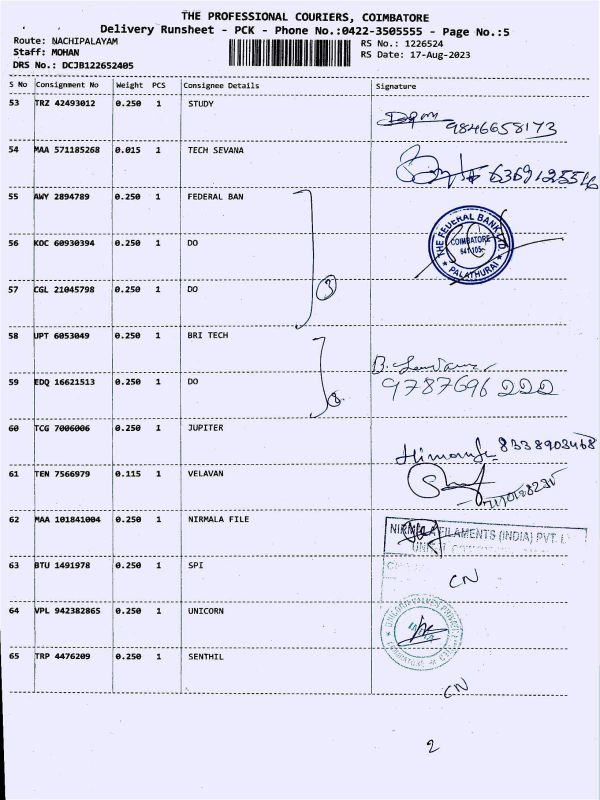 THE PROFESSIONAL COURIERS, COIMBATORE
Delivery Runsheet - PCK - Phone No.:0422-3505555 - Page No.:5
Route: NACHIPALAYAM RS No.: 1226524
Staff: MOHAN RS Date: 17-Aug-2023
DRS No.: DCJB122652405
S No Consignment No Weight PCS Consignee Details Signature
53 TRZ 42493012 0.250 1 STUDY
9846658173
54 MAA 571185268 0.015 1 TECH SEVANA
6369125546
55 AWY 2894789 0.250 1 FEDERAL BAN
THE FEDERAL BANK LTD.
COIMBATORE
641 105
PALATHURAI
56 KOC 60930394 0.250 1 DO
57 CGL 21045798 0.250 1 DO
3
58 UPT 6053049 0.250 1 BRI TECH
59 EDQ 16621513 0.250 1 DO
9787696222
60 TCG 7006006 0.250 1 JUPITER
8338903468
61 TEN 7566979 0.115 1 VELAVAN
62 MAA 101841004 0.250 1 NIRMALA FILE
NIRMALA FILAMENTS (INDIA) PVT.
63 BTU 1491978 0.250 1 SPI
CN
64 VPL 942382865 0.250 1 UNICORN
65 TRP 4476209 0.250 1 SENTHIL
CN
2